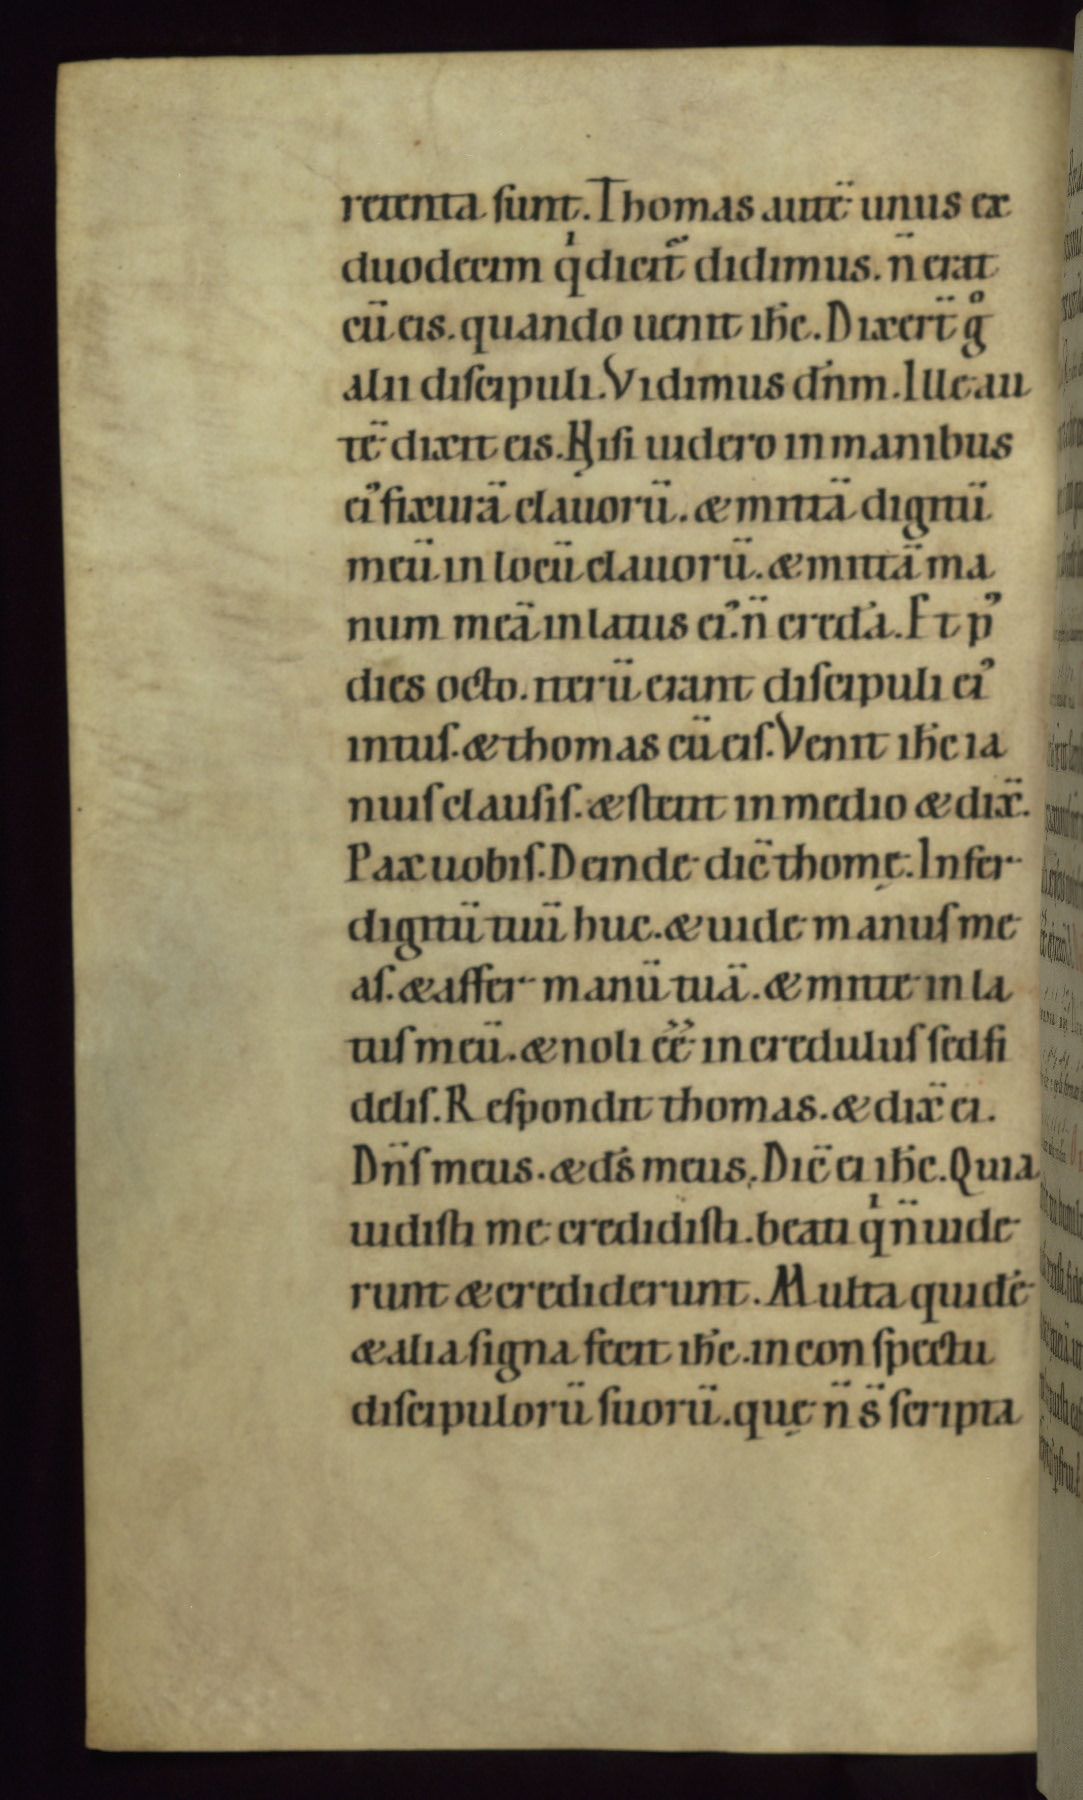 retenta sunt. Thomas autē unus ex
duodecim qͥ dicit̄ didimus. n̄ erat
cū eis. quando uenit ih̄c. Dixert̄ gͦ
alii discipuli. Vidimus dn̄m. Ille au
tē dixit eis. Nisi uidero in manibus
ei᾽ fixurā clauorū. & mittā digitū
meū in locū clauorū. & mittā ma
num meā in latus ei᾽. n̄ credā. Et p᾽
dies octo. iterū erant discipuli ei᾽
intus. & thomas cū eis. Venit ih̄c ia
nuis clausis. & stetit in medio & dix̄.
Pax uobis. Deinde dic̄ thomę. Infer
digitū tuū huc. & uide manus me
as. & affer manū tuā. & mitte in la
tus meū. & noli ēē incredulus sed fi
delis. Respondit thomas. & dix̄ ei.
Dn̄s meus. & ds̄ meus. Dic̄ ei ih̄c. Quia
uidisti me credidisti. beati qͥ n̄ uide
runt & crediderunt. Multa quidē
& alia signa fecit ih̄c. in conspectu
discipulorū suorū. quę n̄ s̄ scripta